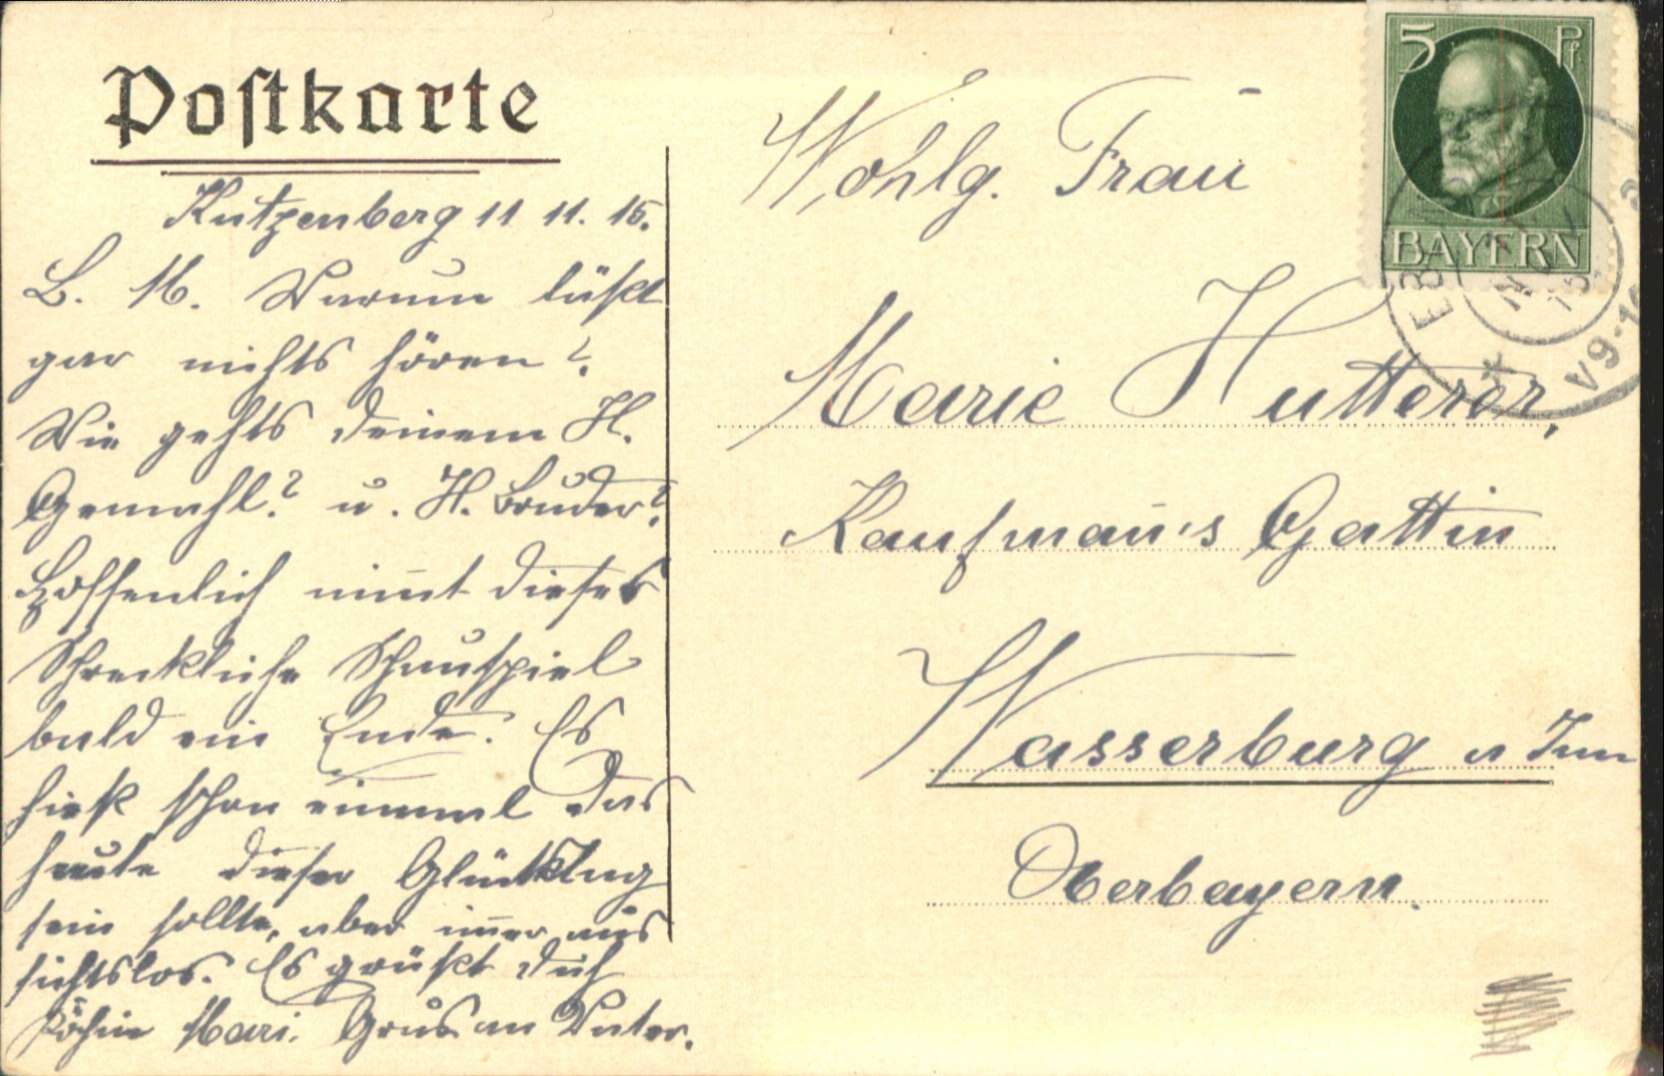 Postkarte
Kutzenberg 11 11. 15.
L. M. Warum läßt
gar nichts hören?
Wie gehts deinem H.
Gemahl? u. H. Bruder?
Hoffentlich nim̄t dieses
Schreckliche Schauspiel
bald ein Ende. Es
hieß schon einmal das
heute dieser Glückstag
sein sollte, aber im̄er aus
sichtslos. Es grüßt dich
Köchin Mari. Grus an Vater.
5 Pf
BAYERN
Wohlg. Frau
Marie Hutterer,
Kaufman̄'s Gattin
Wasserburg a Inn
Oberbayern.